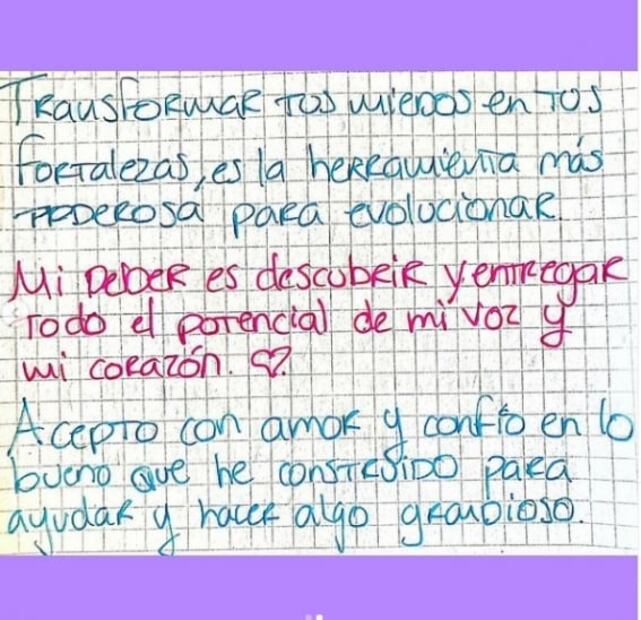 Transformar tus miedos en tus
fortalezas, es la herramienta más
poderosa para evolucionar.
Mi deber es descubrir y entregar
todo el potencial de mi voz y
mi corazón. ♡.
Acepto con amor y confío en lo
bueno que he construido para
ayudar y hacer algo grandioso.